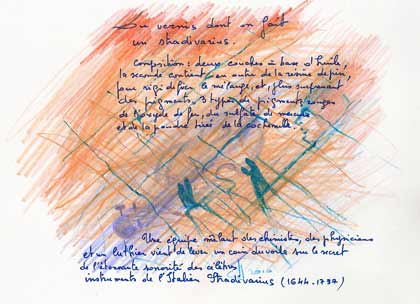 Du vernis dont on fait
un stradivarius.
Composition : deux couches à base d'huile,
la seconde contient en outre de la résine de pin,
pour rigidifier le mélange, et, plus surprenant
des pigments. 3 types de pigments rouges
de l'oxyde de fer, du sulfate de mercure
et de la poudre tirée de la cochenille.
Une équipe mêlant des chimistes, des physiciens
et un luthier vient de lever un coin du voile sur le secret
de l'étonnante sonorité des célèbres
instruments de l'Italien Stradivarius (1644.1737)